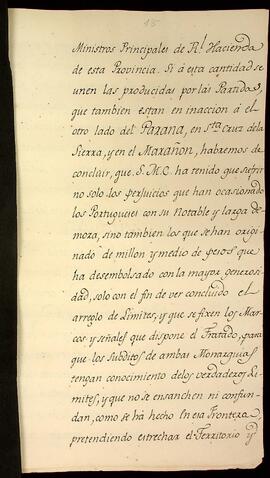 15
Ministros Principales de Rl. Hacienda
de esta Provincia. Si á esta cantidad se
unen las producidas por las Partidas,
que tambien estan en inaccion á el
otro lado del Paraná, en Sta. Cruz de la
Sierra, y en el Marañon, habremos de
concluir, que S. M. C. ha tenido que sufrir
no solo los perjuicios que han ocasionado
los Portugueses con su notable y larga de-
mora, sino tambien los que se han origi-
nado de millon y medio de pesos que
ha desembolsado con la mayor generosi-
dad, solo con el fin de ver concluido el
arreglo de Limites, y que se fixen los Mar-
cos y señales que dispone el Tratado, para
que los subditos de ambas Monarquias
tengan conocimiento de los verdaderos Li-
mites, y que no se ensanchen ni confun-
dan, como se há hecho en esa Frontera,
pretendiendo estrechar el Territorio y